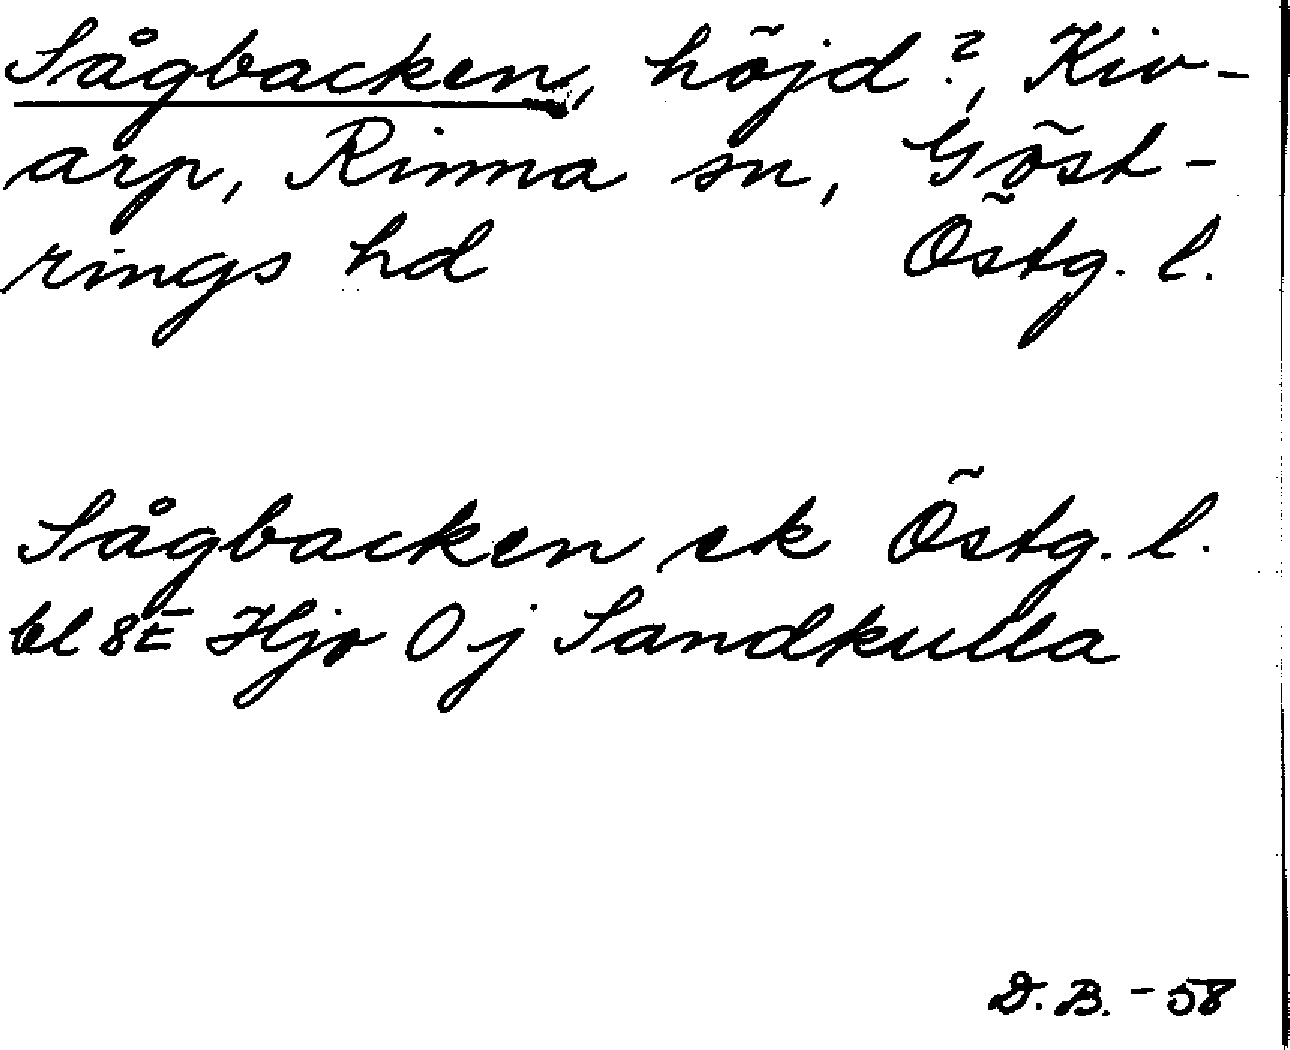 Sågbacken, höjd?, Kiv-
arp, Rinna sn, Göst-
rings hd Östg. l.
Sågbacken ek Östg. l.
bl 8E Hjo O j Sandkulla
D.B. - 58